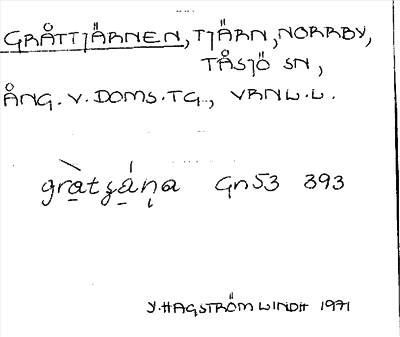 GRÅTTJÄRNEN, TJÄRN, NORRBY,
TÅSJÖ SN,
ÅNG. V. DOMS. TG., VRNL. L.
gràtʒáṇa Gn53 393
Y. HAGSTRÖM LINDH 1971